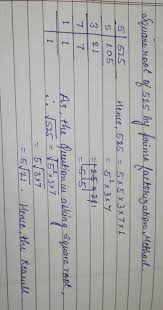 Square root of 525 by prime factorization Method
5 | 525
5 | 105
3 | 21
7 | 7
1 | 1
1
Hence, 525 = 5×5×3×7×1
= 5²×3×7
As, the question is asking square root,
∴ √525 = √5²×3×7
= 5√3×7
= 5√21. Hence, the Result